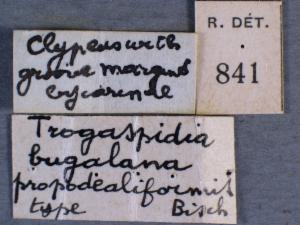 Clypeus with
groove margins
bycarinae
R. DÉT.
841
Trogaspidia
bugalana
propodealiformis
type Bisch